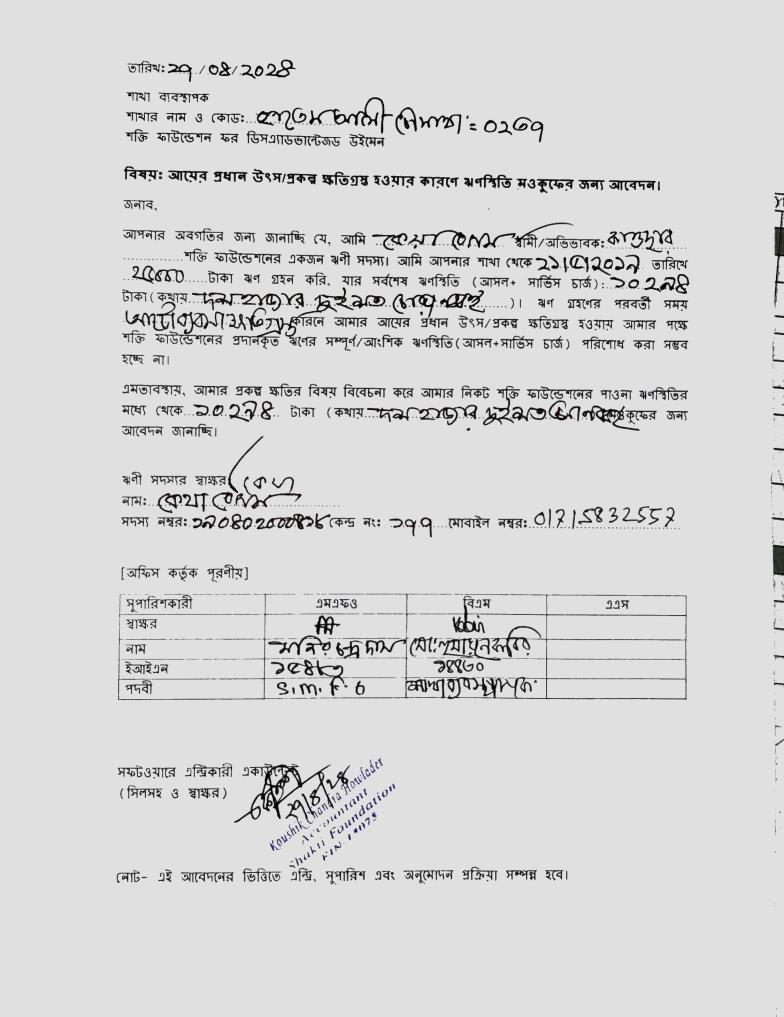 তারিখ: ২৭/০৪/২০২৪
শাখা ব্যবস্থাপক
শাখার নাম ও কোড: = ০২৬৭
শক্তি ফাউন্ডেশন ফর ডিসএ্যাডভান্টেজড উইমেন
বিষয়: আয়ের প্রধান উৎস/প্রকল্প ক্ষতিগ্রস্থ হওয়ার কারণে ঋণস্থিতি মওকুফের জন্য আবেদন।
জনাব,
আপনার অবগতির জন্য জানাচ্ছি যে, আমি স্বামী/অভিভাবক:
শক্তি ফাউন্ডেশনের একজন ঋণী সদস্য। আমি আপনার শাখা থেকে তারিখে
টাকা ঋণ গ্রহন করি, যার সর্বশেষ ঋণস্থিতি (আসল+ সার্ভিস চার্জ): ১০২৭৪
টাকা (কথায় দশ হাজার দুইশত )। ঋণ গ্রহণের পরবর্তী সময়
কারনে আমার আয়ের প্রধান উৎস/প্রকল্প ক্ষতিগ্রস্থ হওয়ায় আমার পক্ষে
শক্তি ফাউন্ডেশনের প্রদানকৃত ঋণের সম্পূর্ণ/আংশিক ঋণস্থিতি(আসল+সার্ভিস চার্জ) পরিশোধ করা সম্ভব
হচ্ছে না।
এমতাবস্থায়, আমার প্রকল্প ক্ষতির বিষয় বিবেচনা করে আমার নিকট শক্তি ফাউন্ডেশনের পাওনা ঋণস্থিতির
মধ্যে থেকে ১০২৭৪ টাকা (কথায় দশ হাজার দুইশত মওকুফের জন্য
আবেদন জানাচ্ছি।
ঋণী সদস্যর স্বাক্ষর:
নাম:
সদস্য নম্বর: কেন্দ্র নং: ১৭৭ মোবাইল নম্বর: 01715832557
[অফিস কর্তৃক পূরণীয়]
সুপারিশকারী এমএফও বিএম এএস
স্বাক্ষর
নাম
ইআইএন ১৪৪৬০
পদবী S.M.F.O শাখা ব্যবস্থাপক
সফটওয়ারে এন্ট্রিকারী একাউন্টেন্ট
(সিলসহ ও স্বাক্ষর)
Koushik Chandra Howlader
Accountant
Shakti Foundation
নোট- এই আবেদনের ভিত্তিতে এন্ট্রি, সুপারিশ এবং অনুমোদন প্রক্রিয়া সম্পন্ন হবে।